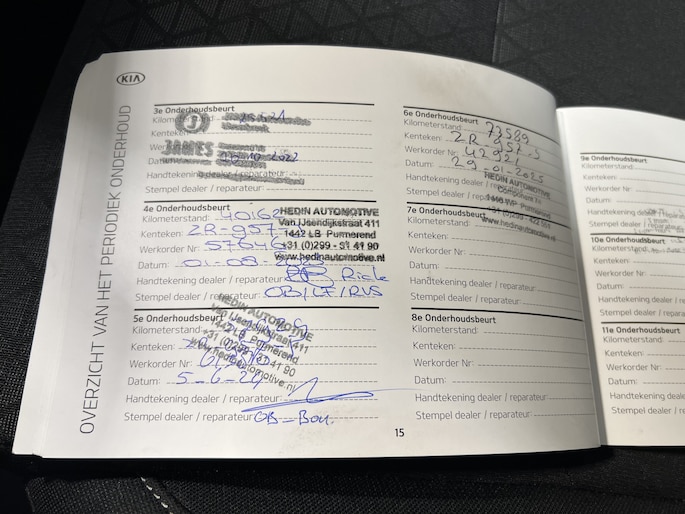 KIA
OVERZICHT VAN HET PERIODIEK ONDERHOUD
3e Onderhoudsbeurt
Kilometerstand:
Kenteken:
Werkorder Nr:
Datum: 2022
Handtekening dealer / reparateur:
Stempel dealer / reparateur:
4e Onderhoudsbeurt
Kilometerstand: 40162
Kenteken: ZR-957-
Werkorder Nr: 57646
Datum: 01-08-
Handtekening dealer / reparateur:
Stempel dealer / reparateur: OB/LF/RVS
HEDIN AUTOMOTIVE
Van IJsendijkstraat 411
1442 LB Purmerend
+31 (0)299 - 31 41 90
www.hedinautomotive.nl
5e Onderhoudsbeurt
Kilometerstand:
Kenteken:
Werkorder Nr:
Datum: 5-6-24
Handtekening dealer / reparateur:
Stempel dealer / reparateur: OB-Bou.
HEDIN AUTOMOTIVE
Van IJsendijkstraat 411
1442 LB Purmerend
+31 (0)299 - 31 41 90
www.hedinautomotive.nl
6e Onderhoudsbeurt
Kilometerstand: 73589
Kenteken: ZR-957-
Werkorder Nr: 42921
Datum: 29-01-2025
Handtekening dealer / reparateur:
Stempel dealer / reparateur:
HEDIN AUTOMOTIVE
1446 WP Purmerend
www.hedinautomotive.nl
7e Onderhoudsbeurt
Kilometerstand:
Kenteken:
Werkorder Nr:
Datum:
Handtekening dealer / reparateur:
Stempel dealer / reparateur:
8e Onderhoudsbeurt
Kilometerstand:
Kenteken:
Werkorder Nr:
Datum:
Handtekening dealer / reparateur:
Stempel dealer / reparateur:
15
9e Onderhoudsbeurt
Kilometerstand:
Kenteken:
Werkorder Nr:
Datum:
Handtekening dealer /
Stempel dealer / repara
10e Onderhoudsbeurt
Kilometerstand:
Kenteken:
Werkorder Nr:
Datum:
Handtekening dealer
Stempel dealer / repa
11e Onderhoudsbeurt
Kilometerstand:
Kenteken:
Werkorder Nr:
Datum:
Handtekening deale
Stempel dealer / re